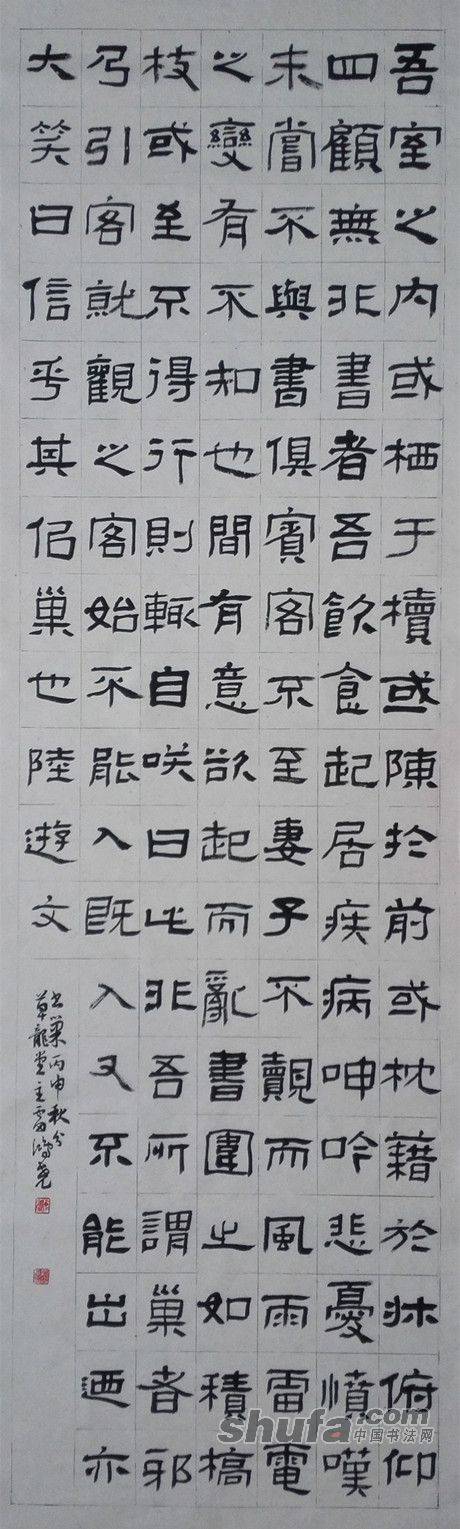 吾室之内或栖于櫝或陳於前或枕藉於牀俯仰
四顧無非書者吾飲食起居疾病呻吟悲憂憤嘆
未嘗不與書俱賓客不至妻子不覿而風雨雷電
之變有不知也間有意欲起而亂書圍之如積槁
枝或至不得行則輒自咲曰此非吾所謂巢者邪
乃引客就觀之客始不能入既入又不能出迺亦
大笑曰信乎其佀巢也陸遊文
书巢丙申秋分
草龍堂主雷鸿尧
shufa.com
中国书法网